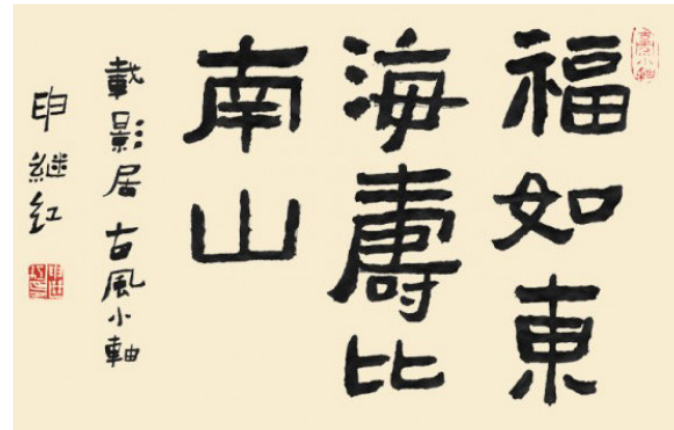 福如東
海壽比
南山
載影居 古風小軸
申继红